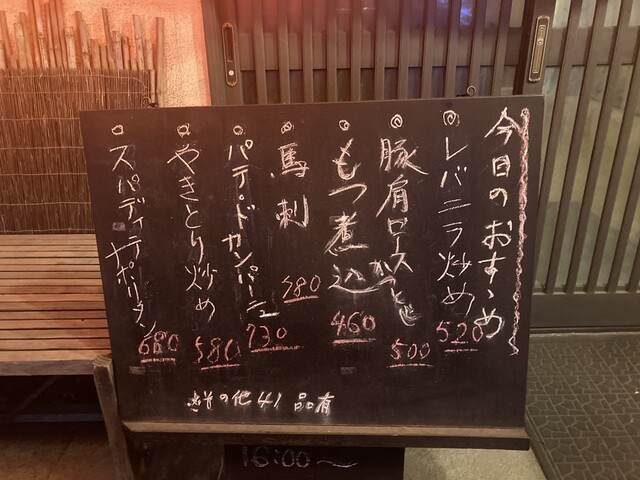 今日のおすゝめ
◎レバニラ炒め 520
◎豚肩ロースかつとじ 500
◎もつ煮込 460
◎馬刺 580
◎パテ・ド・カンパーニュ 730
◎やきとり炒め 580
○スパゲティナポリタン 680
その他41品有
16:00〜